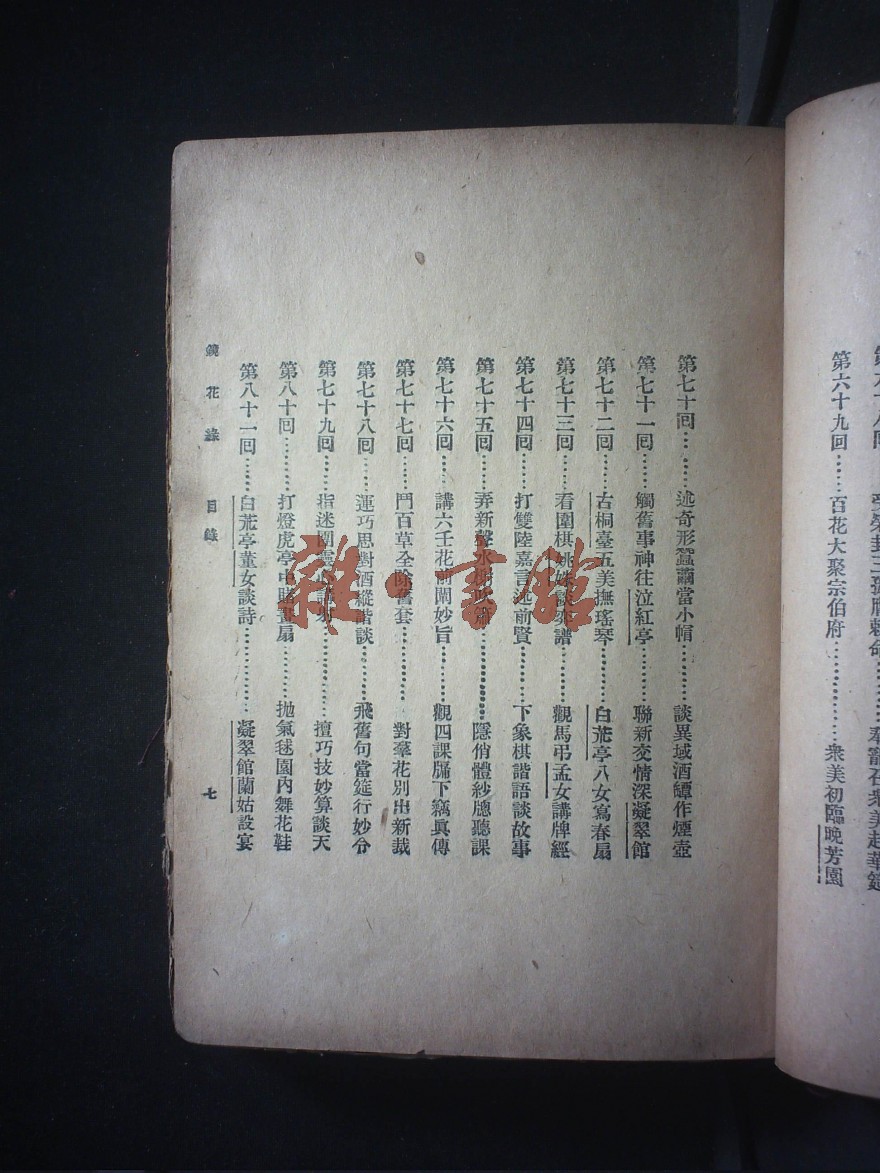 第六十九回……百花大聚宗伯府……衆美初臨晚芳園
第七十回……述奇形蠶繭當小帽……談異域酒罈作煙壺
第七十一回……觸舊事神往泣紅亭……聯新交情深凝翠館
第七十二回……古桐臺五美撫瑤琴……白荒亭八女寫春扇
第七十三回……看圍棋姚姝談弈譜……觀馬弔孟女講牌經
第七十四回……打雙陸嘉言述前賢……下象棋諧語談故事
第七十五回……弄新聲水榭吹簫……隱俏體紗牕聽課
第七十六回……講六壬花前闡妙旨……觀四課牖下竊眞傳
第七十七回……鬥百草全除舊套……對羣花別出新裁
第七十八回……運巧思對酒縱諧談……飛舊句當筵行妙令
第七十九回……指迷團靈心講射……擅巧技妙算談天
第八十回……打燈虎亭中賭畫扇……抛氣毬園內舞花鞋
第八十一回……白荒亭董女談詩……凝翠館蘭姑設宴
鏡花緣 目錄 七
雜·書館